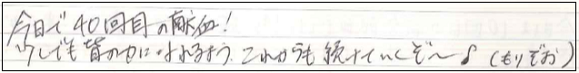 今日で40回目の献血!
少しでも皆の力になれるよう、これからも続けていくぞ〜♪(もりぞお)